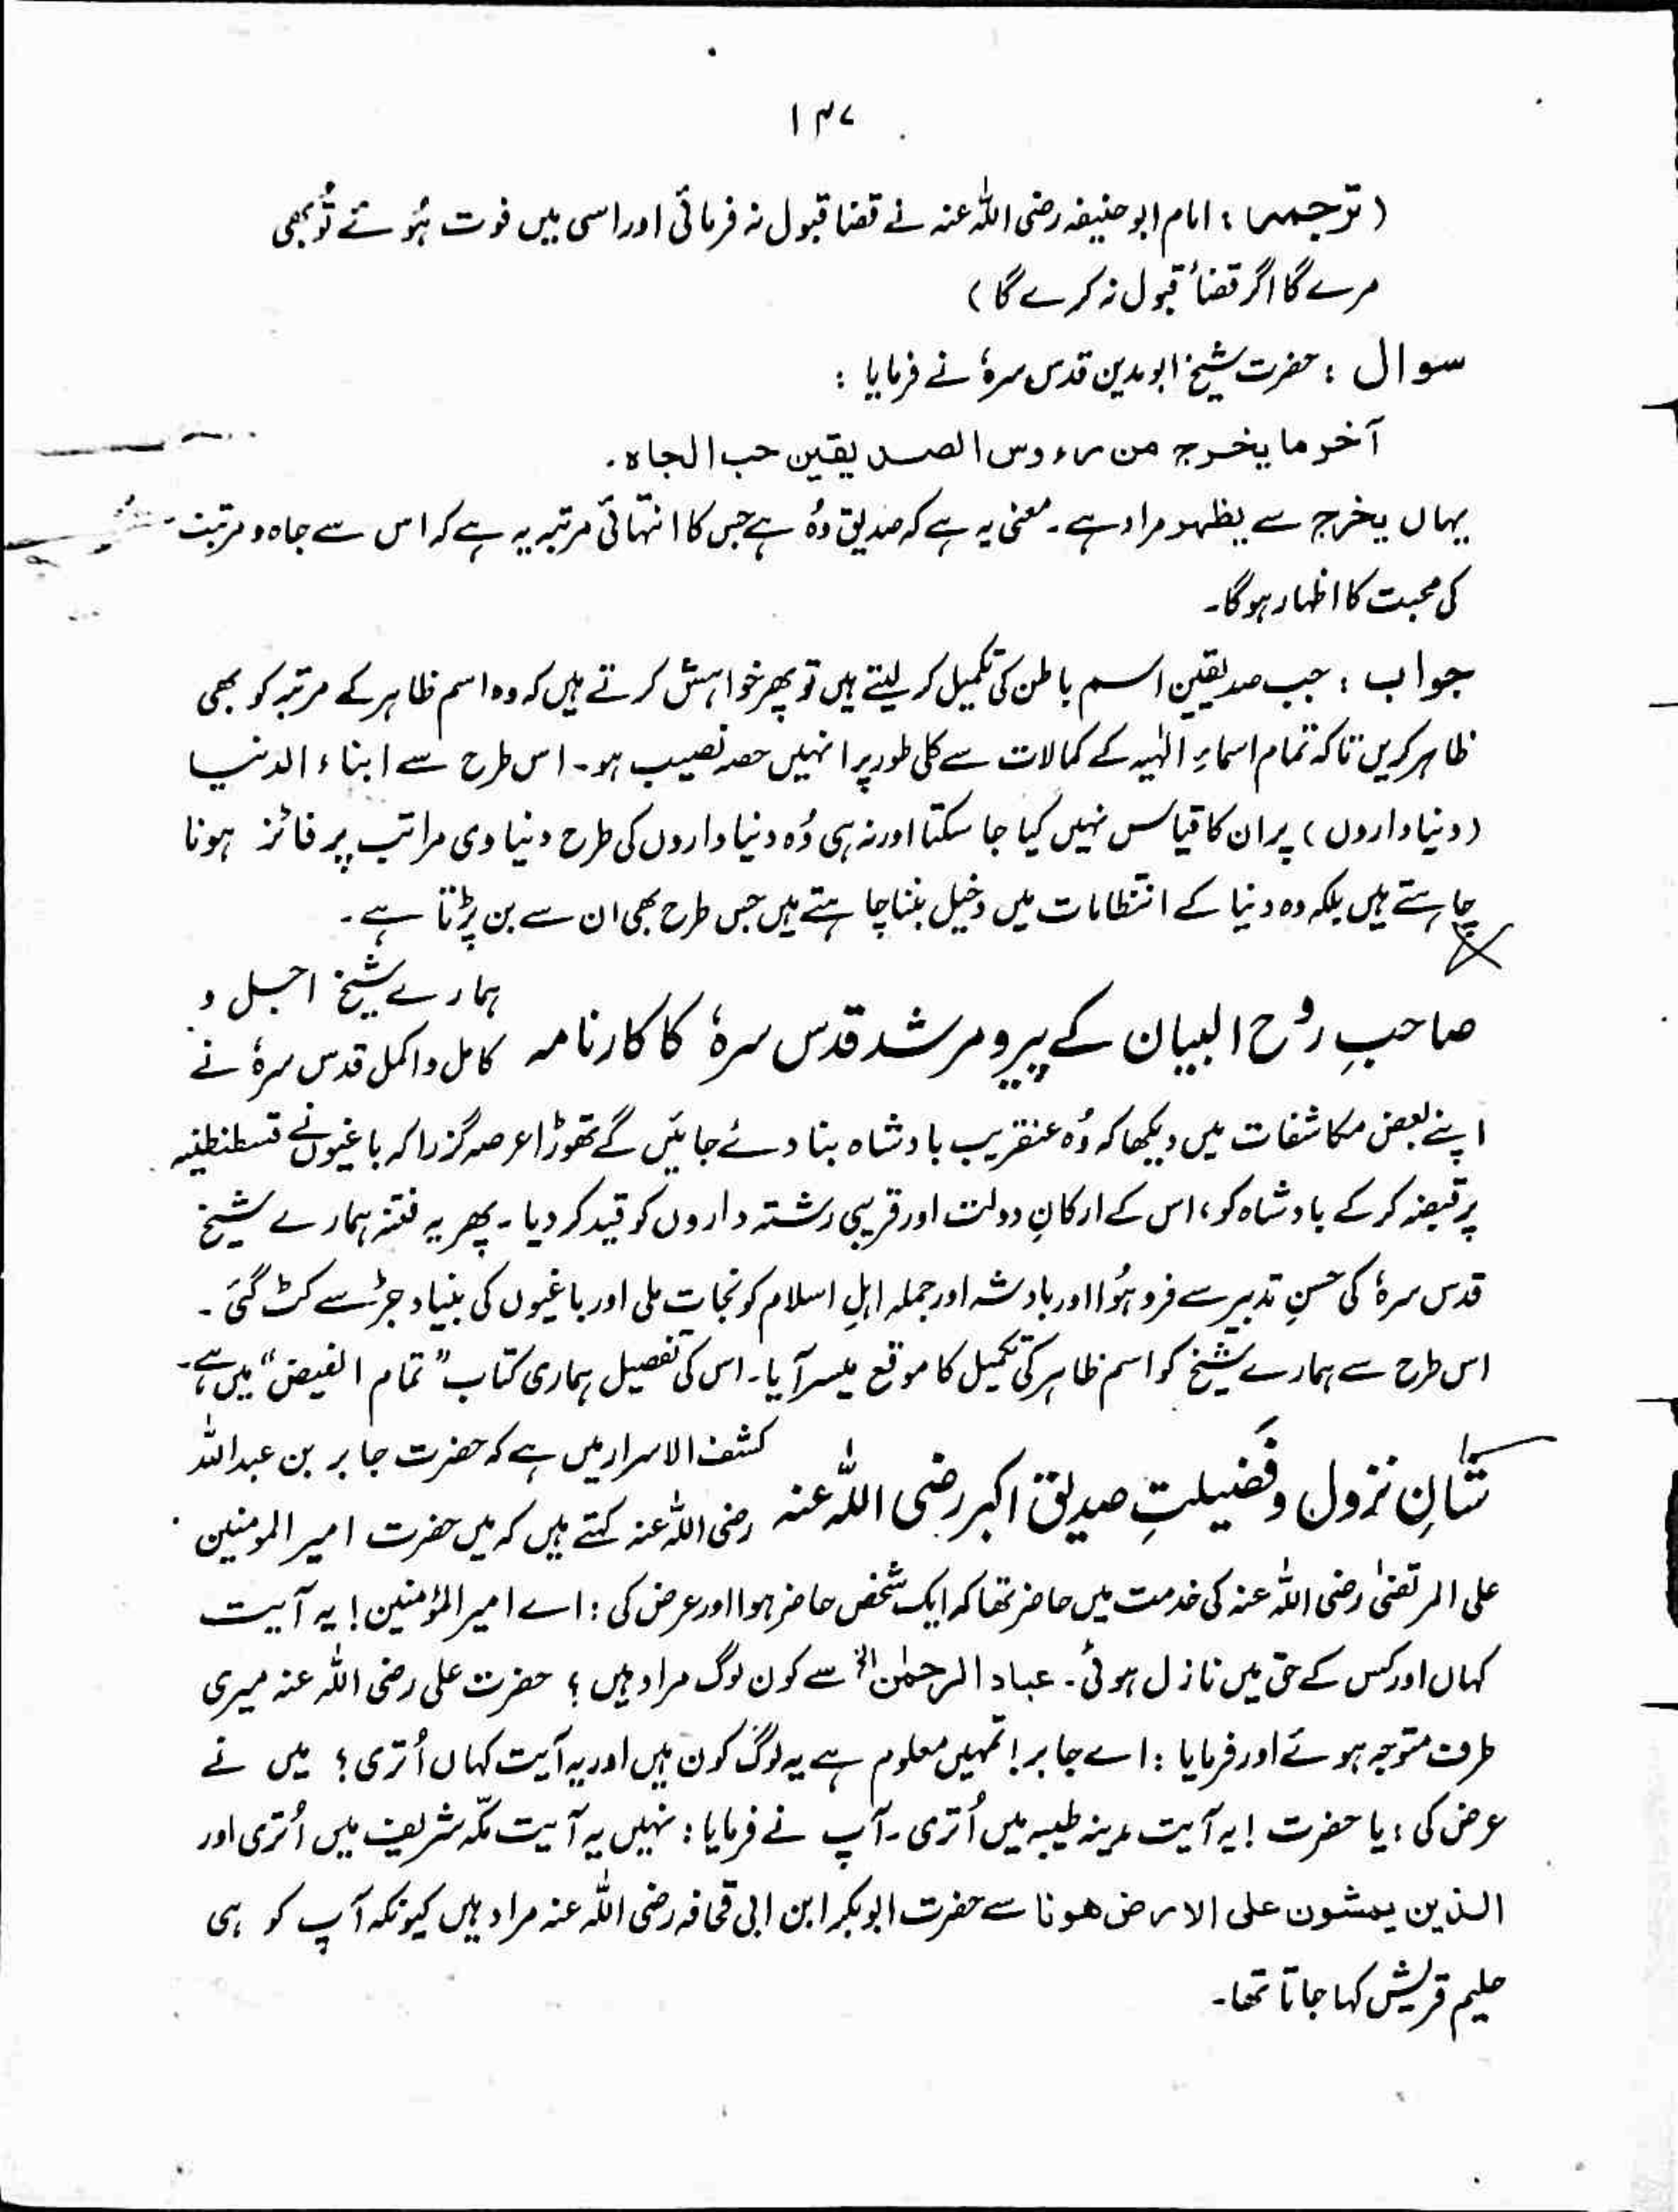 ۱۴۷
(ترجمہ : امام ابوحنیفہ رضی اللہ عنہ نے قضا قبول نہ فرمائی اور اسی میں فوت ہُوئے تُو بھی
مرے گا اگر قضأ قبول نہ کرے گا)
سوال : حضرت شیخ ابو مدین قدس سرہٗ نے فرمایا :
آخر ما یخرج من رءوس الصدیقین حب الجاہ ۔
یہاں یخرج سے یظہر مراد ہے ۔ معنی یہ ہے کہ صدیق وُہ ہے جس کا انتہائی مرتبہ یہ ہے کہ اس سے جاہ و مرتبت
کی محبت کا اظہار ہوگا۔
جواب : جب صدیقین اسم باطن کی تکمیل کر لیتے ہیں تو پھر خواہش کرتے ہیں کہ وہ اسم ظاہر کے مرتبہ کو بھی
ظاہر کریں تاکہ تمام اسماءِ الٰہیہ کے کمالات سے کلی طور پر انہیں حصہ نصیب ہو۔ اس طرح سے ابناء الدنیا
(دنیا داروں) پر ان کا قیاس نہیں کیا جا سکتا اور نہ ہی وُہ دنیا داروں کی طرح دنیاوی مراتب پر فائز ہونا
چاہتے ہیں بلکہ وہ دنیا کے انتظامات میں دخیل بننا چاہتے ہیں جس طرح بھی ان سے بن پڑتا ہے ۔
صاحبِ رُوح البیان کے پیرو مرشد قدس سرہٗ کا کارنامہ
ہمارے شیخ اجل و
کامل و اکمل قدس سرہٗ نے
اپنے بعض مکاشفات میں دیکھا کہ وُہ عنقریب بادشاہ بنا دئے جائیں گے تھوڑا عرصہ گزرا کہ باغیوں نے قسطنطنیہ
پر قبضہ کر کے بادشاہ کو، اس کے ارکانِ دولت اور قریبی رشتہ داروں کو قید کر دیا ۔ پھر یہ فتنہ ہمارے شیخ
قدس سرہٗ کی حسنِ تدبیر سے فرو ہُوا اور بادشہ اور جملہ اہلِ اسلام کو نجات ملی اور باغیوں کی بنیاد جڑ سے کٹ گئی ۔
اس طرح سے ہمارے شیخ کو اسم ظاہر کی تکمیل کا موقع میسر آیا ۔ اس کی تفصیل ہماری کتاب "تمام الفیض" میں ہے ۔
شانِ نزول و فضیلتِ صدیق اکبر رضی اللہ عنہ
کشف الاسرار میں ہے کہ حضرت جابر بن عبداللہ
رضی اللہ عنہ کہتے ہیں کہ میں حضرت امیر المومنین
علی المرتضیٰ رضی اللہ عنہ کی خدمت میں حاضر تھا کہ ایک شخص حاضر ہوا اور عرض کی : اے امیر المؤمنین ! یہ آیت
کہاں اور کس کے حق میں نازل ہوئی ۔ عباد الرحمٰن الخ سے کون لوگ مراد ہیں ؟ حضرت علی رضی اللہ عنہ میری
طرف متوجہ ہوئے اور فرمایا : اے جابر ! تمہیں معلوم ہے یہ لوگ کون ہیں اور یہ آیت کہاں اُتری ؟ میں نے
عرض کی : یا حضرت ! یہ آیت مدینہ طیبہ میں اُتری ۔ آپ نے فرمایا : نہیں یہ آیت مکّہ شریف میں اُتری اور
الذین یمشون علی الارض ھونا سے حضرت ابوبکر ابن ابی قحافہ رضی اللہ عنہ مراد ہیں کیونکہ آپ کو ہی
حلیم قریش کہا جاتا تھا ۔